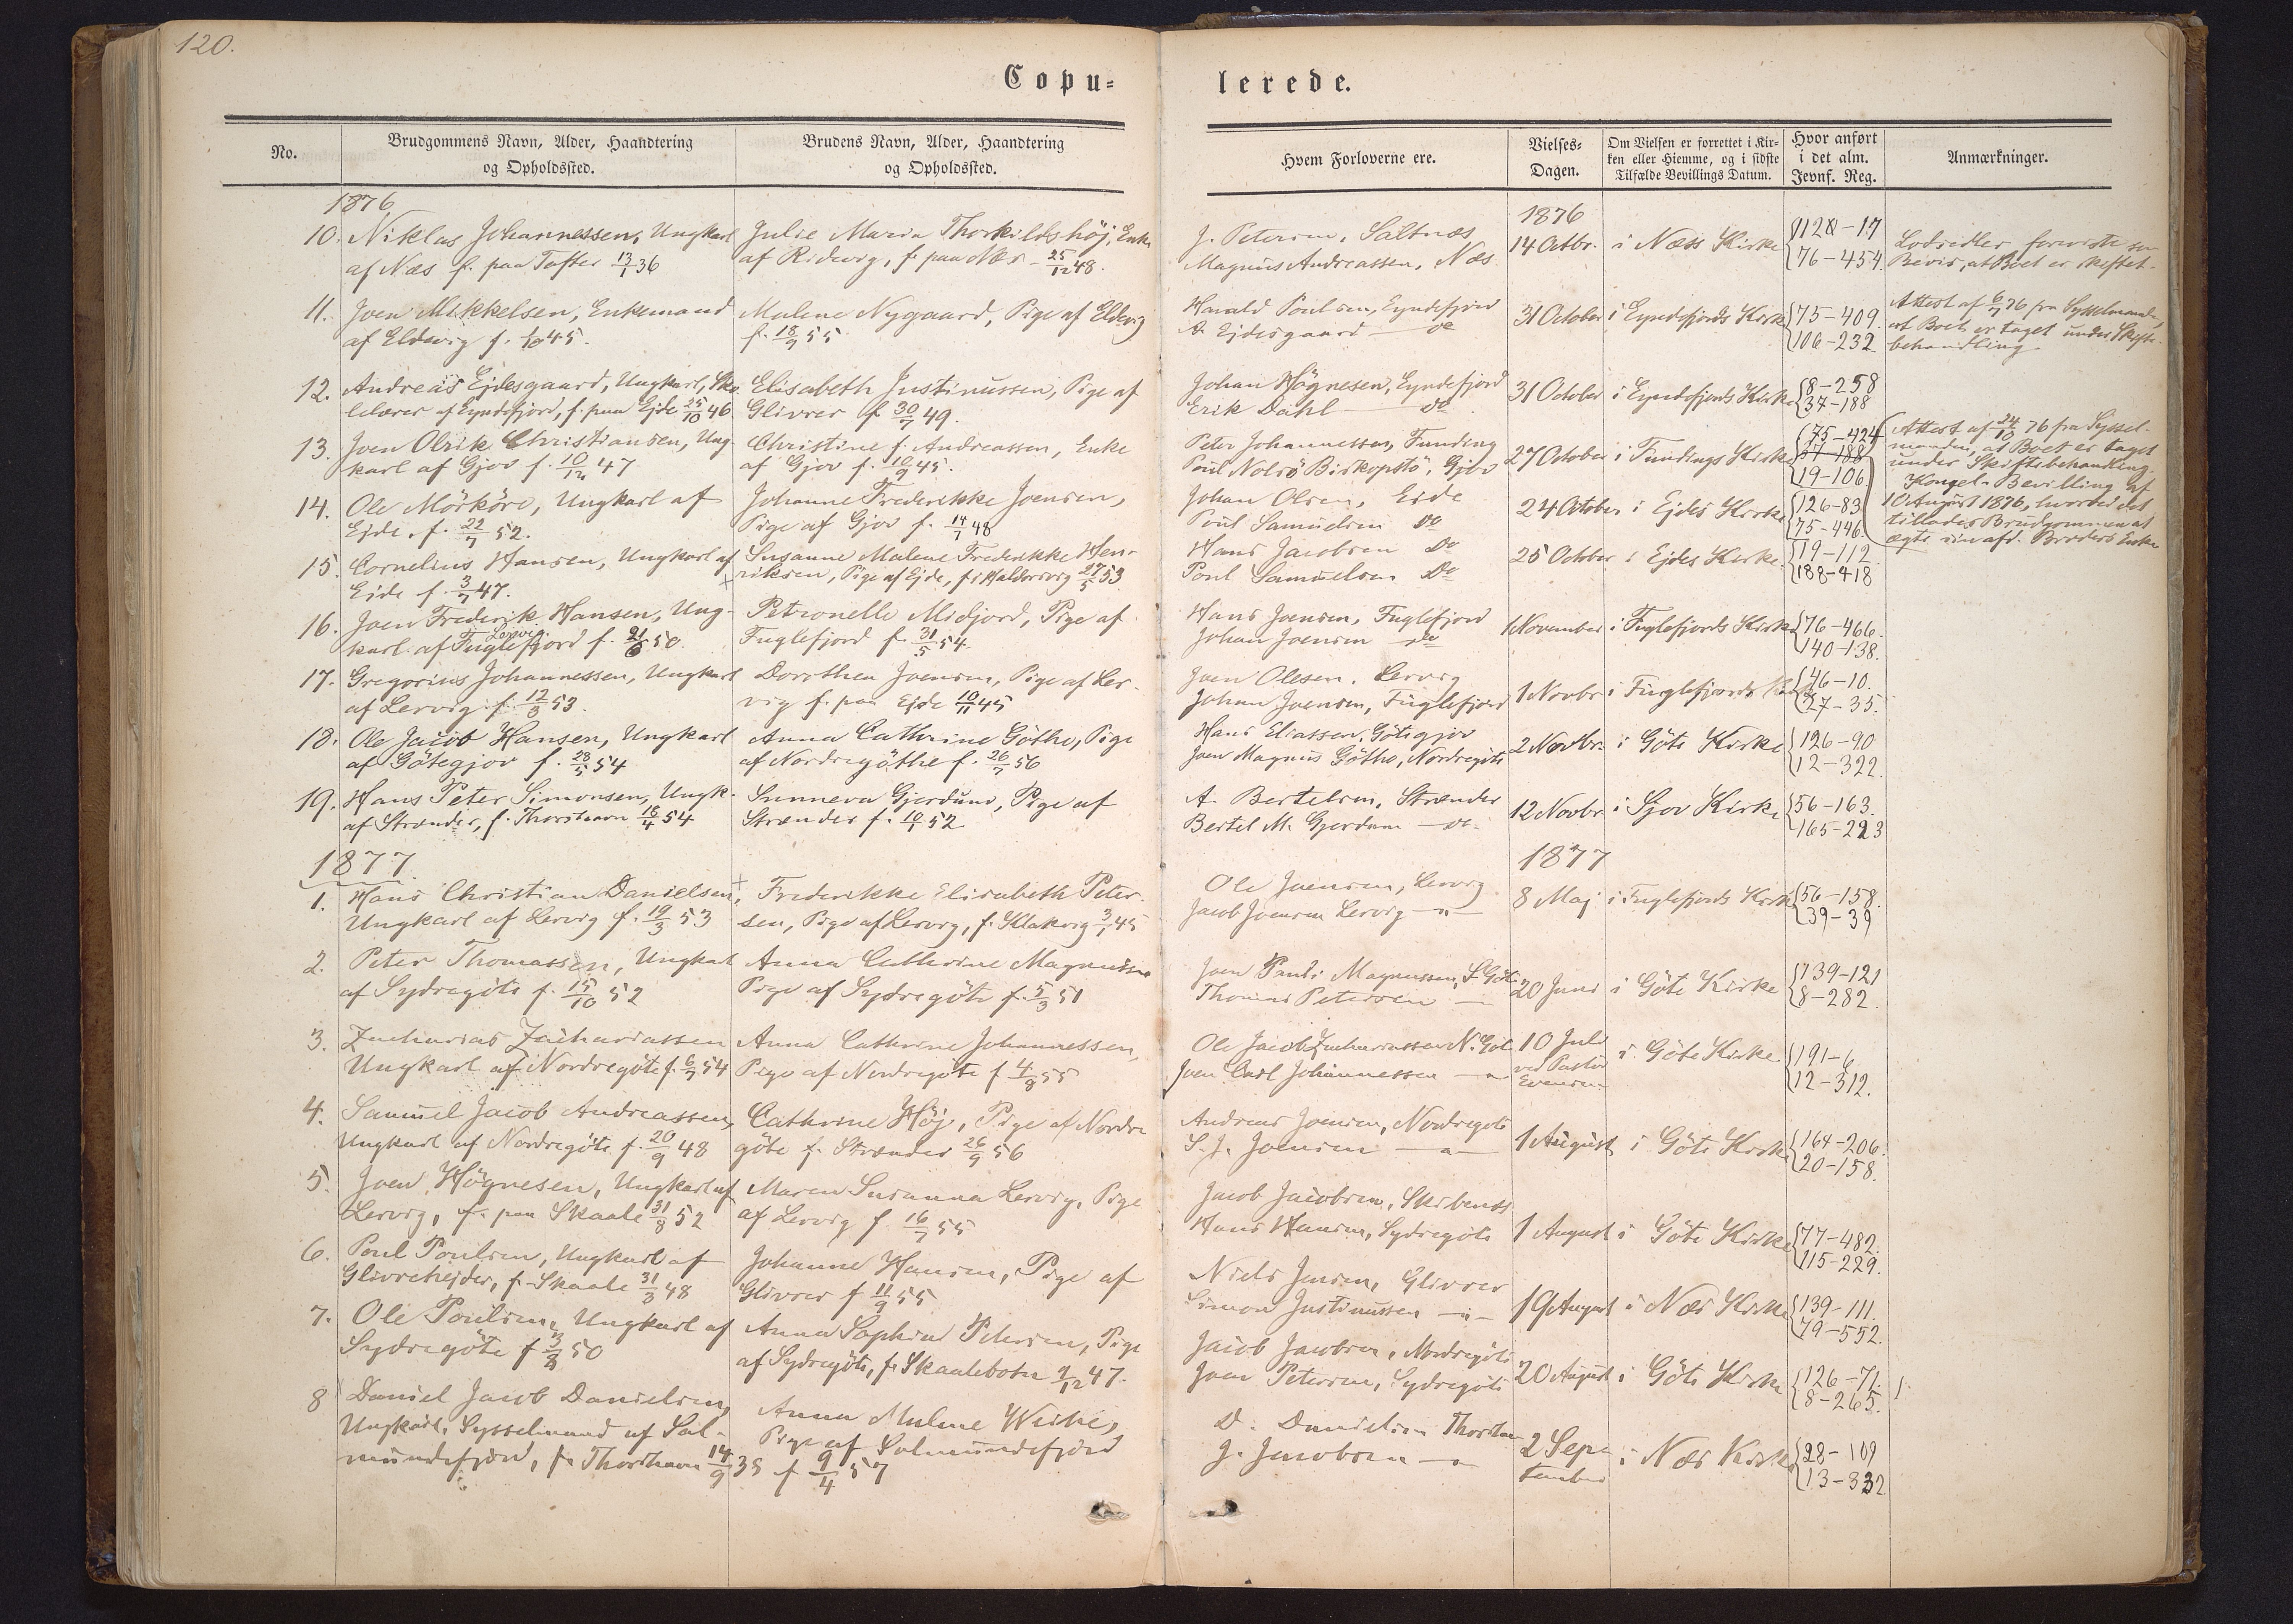 120.
Copu=
lerede.
No.
Brudgommens Navn, Alder, Haandtering
og Opholdssted.
Brudens Navn, Alder, Haandtering
og Opholdssted.
Hvem Forloverne ere.
Vielses=
Dagen.
Om Vielsen er forrettet i Kir=
ken eller Hiemme, og i sidste
Tilfælde Bevillings Datum.
Hvor anført
i det alm.
Jevnf. Reg.
Anmærkninger.
1876
1876
10. Niklas Johannessen, Ungkarl
af Næs f. paa Tofter 13/1 36
Julie Maria Thorkildshöj, Enke
af Ridevig, f. paa Næs - 25/12 48.
J. Petersen, Saltnæs
Magnus Andreassen, Næs.
14 Octbr. i Næss Kirke
128-17
76-454.
Bevis, at Boet er skiftet.
11. Joen Mikkelsen, Enkemand
af Eldevig f. 1/10 45.
Malene Nygaard, Pige af Eldevig
f. 18/9 55
Harald Poulsen, Eyndefjord
A. Ejdesgaard do
31 October i Eyndefjords Kirke
75-409.
106-232
Attest af 6/7 76 fra Sysselmanden,
at Boet er taget under Skifte-
behandling
12. Andreas Ejdesgaard, Ungkarl, Sko
lelærer af Eyndefjord, f. paa Ejde 25/10 46
Elisabeth Justinussen, Pige af
Glivrer f 30/7 49.
Johan Högnesen, Eyndefjord
Erik Dahl do
31 October i Eyndefjords Kirke
8-258
37-188
13. Joen Olrik Christiansen, Ung-
karl af Gjov f. 10/12 47
Christine f. Andreassen, Enke
af Gjov f. 10/9 45.
Peter Johannessen, Funding
Poul Nolsö Biskopstö, Gjov
27 October i Fundings Kirke
75-424
37-188
19-106
Attest af 24/10 76 fra Syssel-
manden, at Boet er taget
under Skiftebehandling.
Kongel. Bevilling af
10 August 1876, hvorved det
tillades Brudgommen at
ægte sin afd. Broders Enke
14. Ole Mörköre, Ungkarl af
Ejde, f. 22/7 52.
Johanne Frederikke Joensen,
Pige af Gjov f. 14/7 48
Johan Olsen, Eide
Poul Samuelsen do
24 October i Ejdes Kirke
126-83
75-446
15. Cornelius Hansen, Ungkarl af
Eide f. 3/7 47.
Susanne Malene Frederikke Hen-
riksen, Pige af Ejde, f. i Haldersvig 27/5 53
Hans Jacobsen Do
Poul Samuelsen Do
25 October i Ejdes Kirke.
19-112
188-418
16. Joen Frederik Hansen, Ung-
Lervig
karl af Fuglefjord f. 21/6 50.
Petronelle Midjord, Pige af
Fuglefjord f 31/5 54.
Hans Joensen, Fuglefjord
Johan Joensen do
1 November i Fuglefjords Kirke
76-466.
140-138.
17. Gregorius Johannessen, Ungkarl
af Lervig f. 12/8 53.
Dorothea Joensen, Pige af Ler-
vig f. paa Ejde 10/11 45
Joen Olesen. Lervig
Johan Joensen, Fuglefjord
1 Novbr i Fuglefjords Kirke
46-10.
27-35.
18. Ole Jacob Hansen, Ungkarl
af Götegjov f. 28/5 54
Anna Cathrine Göthe, Pige
af Nordregöthe f. 26/7 56
Hans Eliassen, Götegjov
Joen Magnus Göthe, Nordregöte
2 Novbr. i Göte Kirke
126-90
12-322.
19. Hans Peter Simonsen, Ungk.
af Strænder, f. Thorshavn 18/4 54
Sunneva Gjerdum, Pige af
Strænder f. 10/1 52
A. Bertelsen, Strænder
Bertel M. Gjerdum do.
12 Novbr. i Sjov Kirke
56-163.
165-223
1877.
1877
1. Hans Christian Danielsen,
Ungkarl af Lervig f. 19/3 53
Frederikke Elisabeth Peter-
sen, Pige af Lervig, f. Klakvig 3/1 45
Ole Joensen, Lervig
Jacob Joensen Lervig -"-
8 Maj i Fuglefjords Kirke
56-158.
39-39
2. Peter Thomassen, Ungkarl
af Sydregöte f. 15/10 52
Anna Cathrine Magnussen
Pige af Sydregöte f. 5/3 51
Joen Pauli Magnussen, S. Göte
Thomas Petersen -
20 Juni i Göte Kirke
139-121
8-282.
3. Zacharias Zachariassen
Ungkarl af Nordregöte f. 6/7 54
Anna Cathrine Johannessen,
Pige af Nordregöte f 4/8 55
Ole Jacob Zachariassen N. Göt.
Joen Carl Johannessen -"-
10 Juli
ved Pastor
Evensen
i Göte Kirke
191-6
12-312.
4. Samuel Jacob Andreassen,
Ungkarl af Nordregöte f. 20/9 48
Cathrine Höj, Pige af Nordre
göte f. Strænder 26/9 56
Andreas Joensen, Nordregöte
S. J. Joensen -"-
1 August i Göte Kirke
164-206.
20-158.
5. Joen Högnesen, Ungkarl af
Lervig, f. paa Skaale 31/8 52
Maren Susanna Lervig, Pige
af Lervig f. 16/7 55
Jacob Jacobsen, Skibenæs
Hans Hansen, Sydregöte
1 August i Göte Kirke
77-482.
115-229.
6. Poul Poulsen, Ungkarl af
Glivrehejder, f. Skaale 31/3 48
Johanne Hansen, Pige af
Glivrer f 11/9 55
Niels Jensen, Glivrer
Simon Justinussen -"-
19 August i Næs Kirke
139-111.
79-552.
7. Ole Poulsen, Ungkarl af
Sydregöte f 3/8 50
Anna Sophie Petersen, Pige
af Sydregöte, f. Skaalebotn 9/12 47.
Jacob Jacobsen, Nordregöte
Joen Petersen, Sydregöte
20 August i Göte Kirke
126-71.
8-265.
8 Daniel Jacob Danielsen,
Ungkarl, Sysselmand af Sal-
mundefjord, f. Thorshavn 14/9 35
Anna Malene Weihe,
Pige af Salmundefjord
f 9/4 57
D. Danielsen Thorshavn
J. Jacobsen -"-
2 Sep-
tember
i Næs Kirke
28-109
13-332